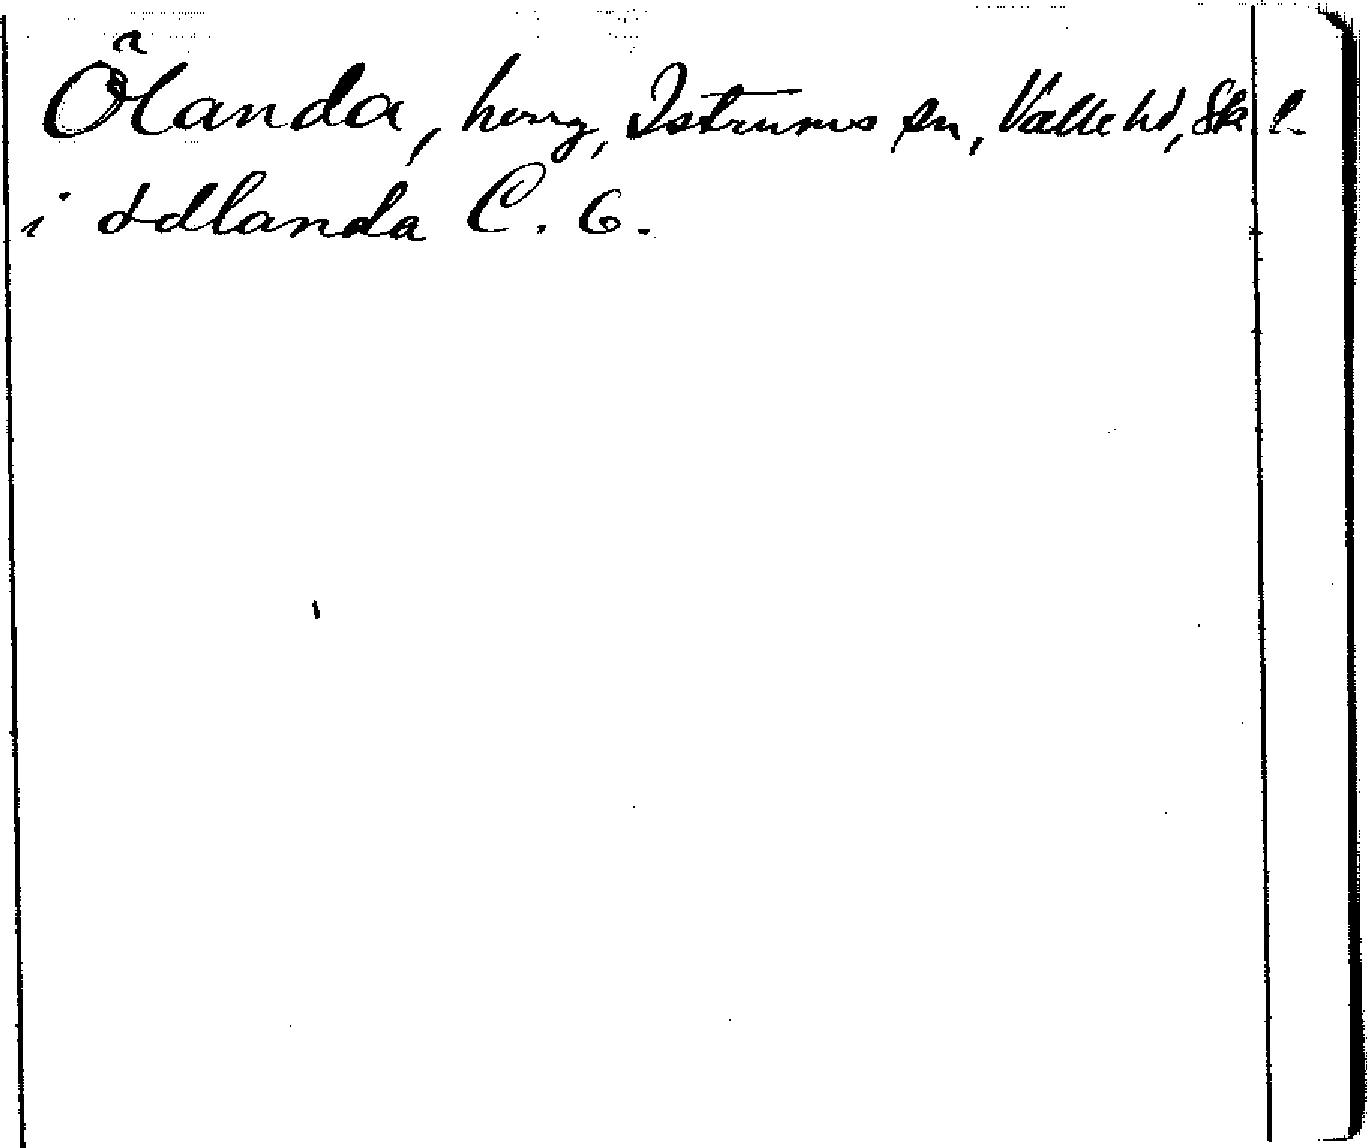 Ölanda, hmg, Istrums sn, Valle hd, Ska l.
i ödlanda C. 6.